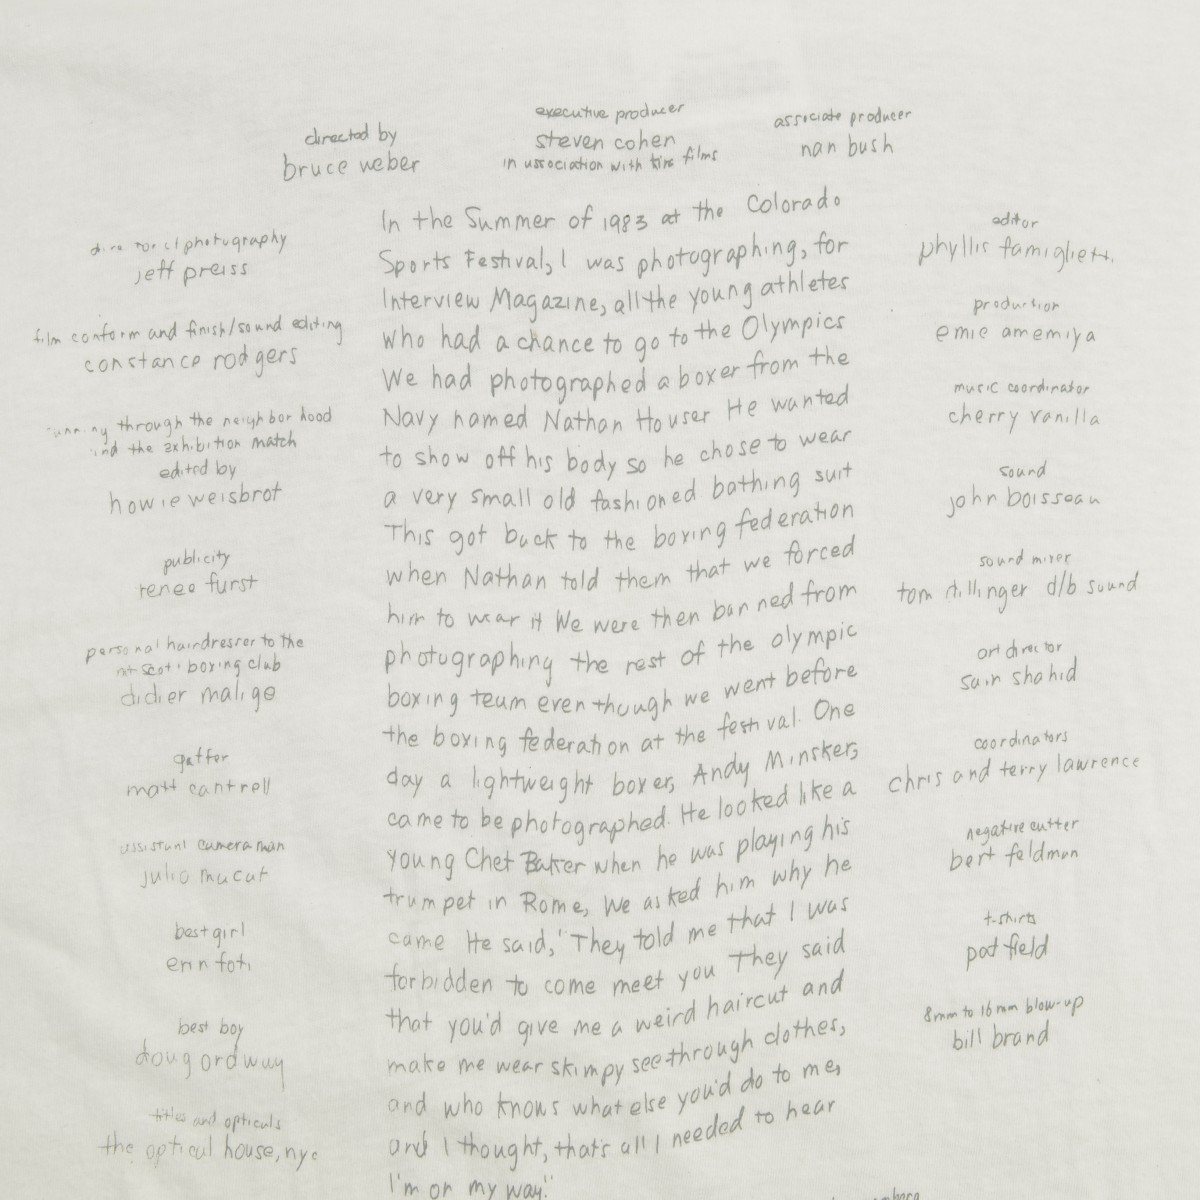 directed by
bruce weber
executive producer
steven cohen
in association with films
associate producer
nan bush
In the Summer of 1983 at the Colorado
Sports Festival, I was photographing, for
Interview Magazine, all the young athletes
who had a chance to go to the Olympics
We had photographed a boxer from the
Navy named Nathan Houser He wanted
to show off his body so he chose to wear
a very small old fashioned bathing suit
This got back to the boxing federation
when Nathan told them that we forced
him to wear it We were then banned from
photographing the rest of the olympic
boxing team even though we went before
the boxing federation at the festival. One
day a lightweight boxer, Andy Minsker,
came to be photographed. He looked like a
young Chet Baker when he was playing his
trumpet in Rome, We asked him why he
came He said, "They told me that I was
forbidden to come meet you They said
that you'd give me a weird haircut and
make me wear skimpy see through clothes,
and who knows what else you'd do to me,
and I thought, that's all I needed to hear
I'm on my way."
director of photography
jeff preiss
film conform and finish/sound editing
constance rodgers
running through the neighborhood
and the exhibition match
edited by
howie weisbrot
publicity
renee furst
personal hairdresser to the
mt scott boxing club
didier malige
gaffer
matt cantrell
assistant cameraman
julio macat
best girl
erin foti
best boy
doug ordway
titles and opticals
the optical house, nyc
editor
phyllis famiglietti
production
emie amemiya
music coordinator
cherry vanilla
sound
john boisseau
sound mixer
tom dillinger d/b sound
art director
sam shahid
coordinators
chris and terry lawrence
negative cutter
bert feldman
t-shirts
pat field
8mm to 16mm blow-up
bill brand